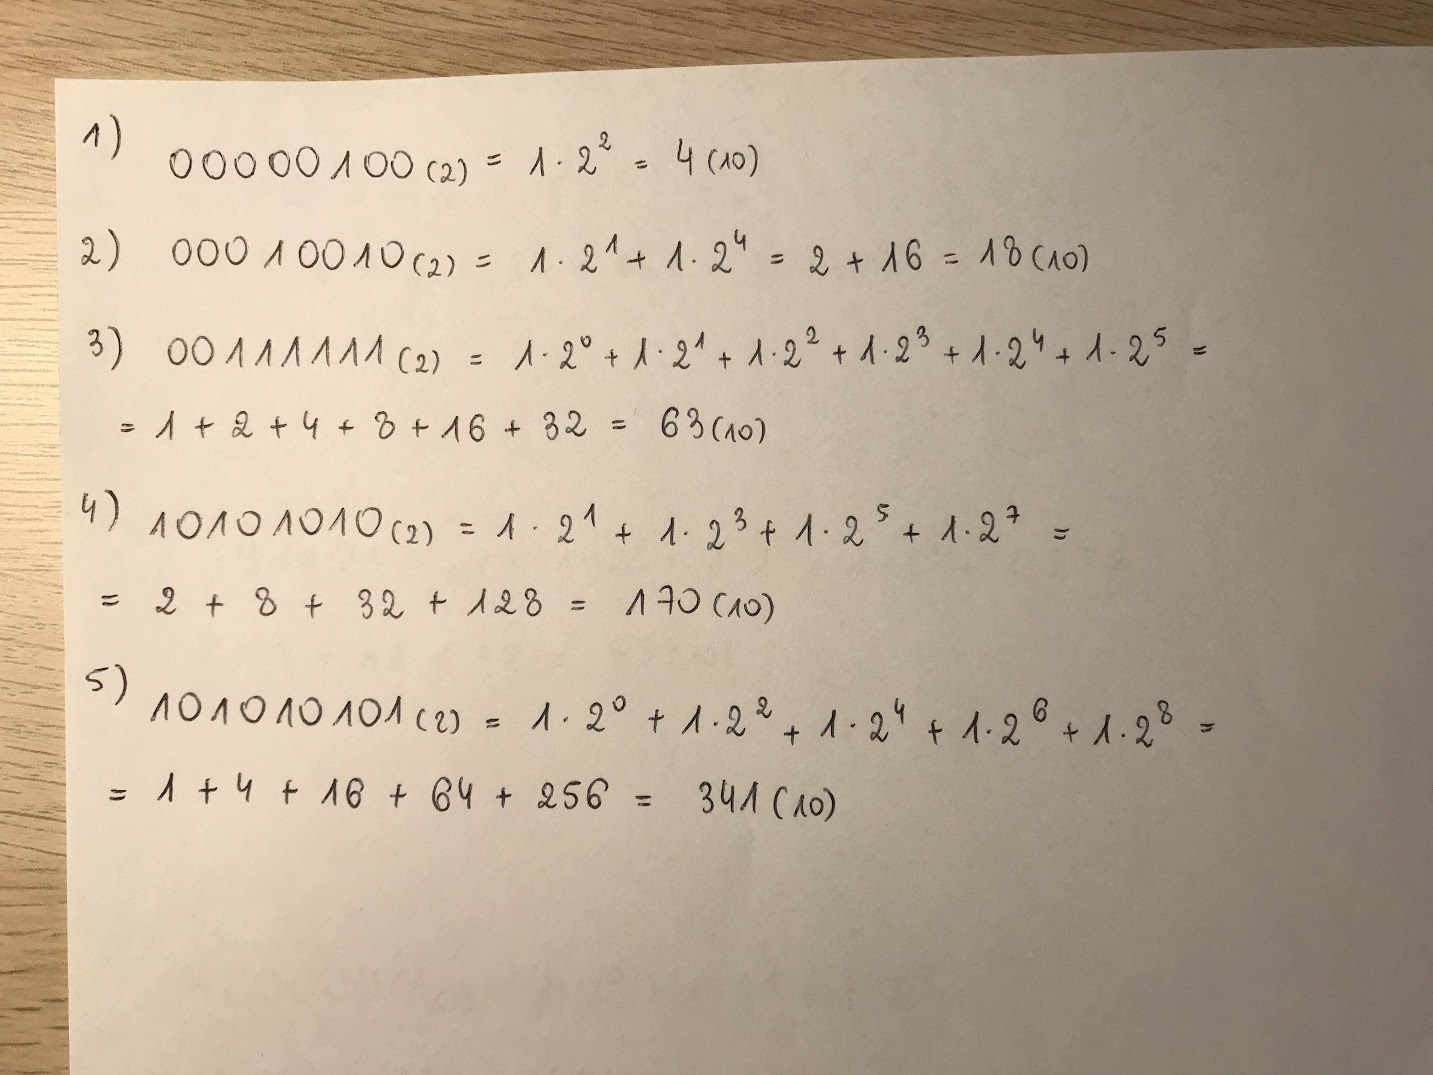 1) 00000100(2) = 1·2² = 4(10)
2) 00010010(2) = 1·2¹ + 1·2⁴ = 2 + 16 = 18(10)
3) 00111111(2) = 1·2⁰ + 1·2¹ + 1·2² + 1·2³ + 1·2⁴ + 1·2⁵ =
= 1 + 2 + 4 + 8 + 16 + 32 = 63(10)
4) 10101010(2) = 1·2¹ + 1·2³ + 1·2⁵ + 1·2⁷ =
= 2 + 8 + 32 + 128 = 170(10)
5) 101010101(2) = 1·2⁰ + 1·2² + 1·2⁴ + 1·2⁶ + 1·2⁸ =
= 1 + 4 + 16 + 64 + 256 = 341(10)